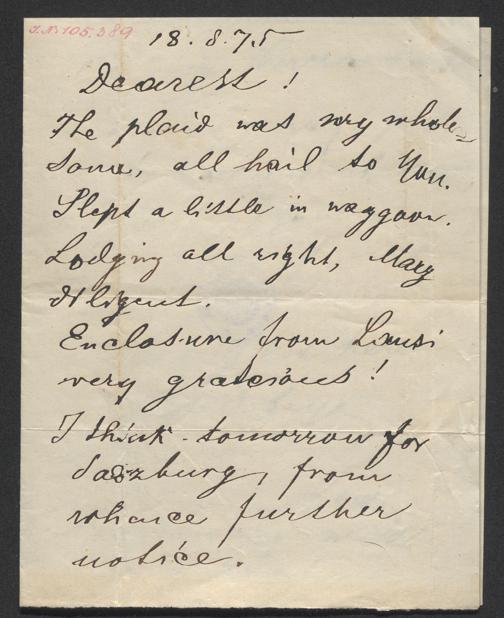 I.N. 105.389
18.8.75
Dearest!
The plaid was very whole=
some, all hail to You.
Slept a little in waggoon.
Lodging all right, Mary
diligent.
Enclosure from Lousi
very gratcious!
I think tomorrow for
Salzburg, from
whence further
notice.